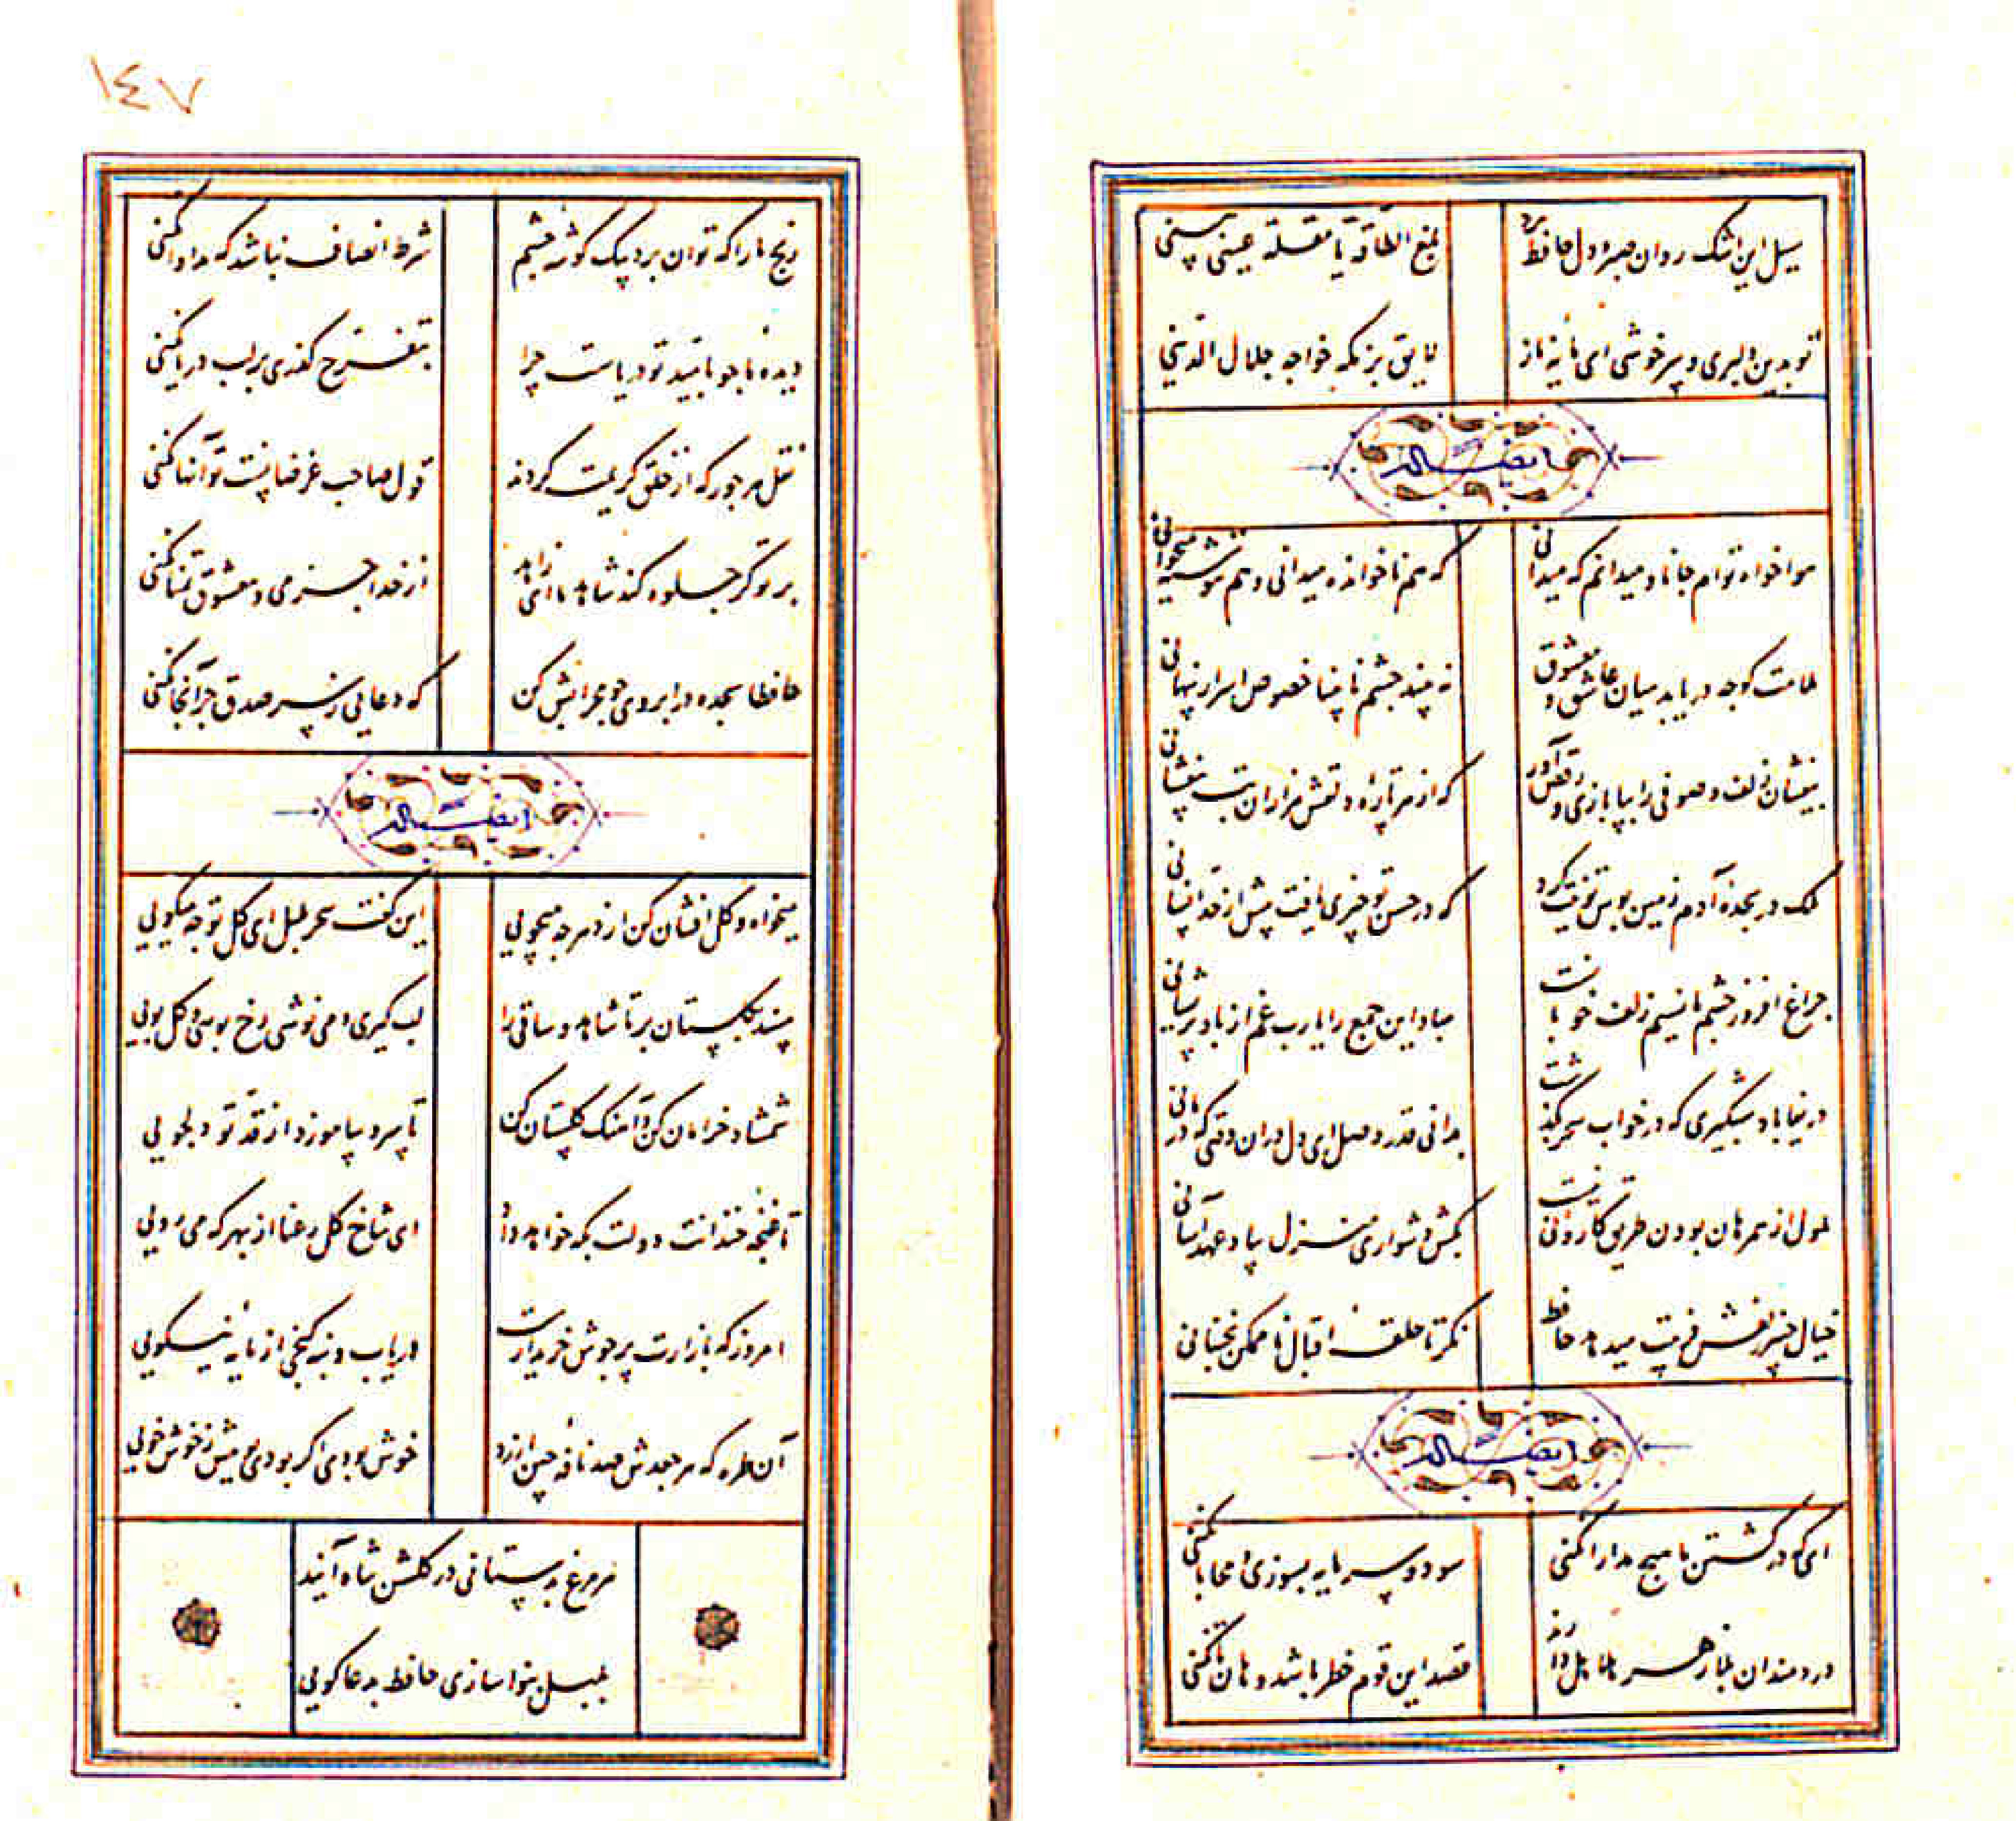 سیل این اشک روان صبر و دل حافظ برد
بلغ الطاقه یا مقلة عینی بینی
تو بدین دلبری و سرخوشی ای مایه ناز
لایق بزمگه خواجه جلال الدینی
ایضاله
هواخواه توام جانا و میدانم که میدانی
که هم ناخوانده میدانی و هم ننوشته میخوانی
ملامت گو چه دریابد میان عاشق و معشوق
نه بیند چشم نابینا خصوص اسرار پنهانی
بیفشان زلف و صوفی را بپا بازی و رقص آور
که از هر پاره دلقش هزاران بت بیفشانی
ملک در سجده آدم زمین بوس تو نیت کرد
که در حسن تو چیزی یافت بیش از حد انسانی
چراغ افروز چشم ما نسیم زلف خوبانست
مباد این جمع را یا رب غم از باد پریشانی
دریغا باد شبگیری که در خواب سحر بگذشت
بدانی قدر وصل ای دل در ان وقتی که درمانی
ملول از همرهان بودن طریق کاردانی نیست
بکش دشواری منزل بیاد عهد آسانی
خیال چنبر زلفش فریبت میدهد حافظ
نگر تا حلقه اقبال ناممکن نجنبانی
ایضاله
ای که در کشتن ما هیچ مدارا نکنی
سود و سرمایه بسوزی و محابا نکنی
دردمندان بلا زهر هلاهل دارند
قصد این قوم خطر باشد و هان تا نکنی
١٤٧
رنج ما را که توان برد بیک گوشه چشم
شرط انصاف نباشد که مداوا نکنی
دیده ما چو بامید تو دریاست چرا
بتفرج گذری بر لب دریا نکنی
نقل هر جور که از خلق کریمت کردند
قول صاحب غرضانست تو آنها نکنی
بر تو گر جلوه کند شاهد ما ای زاهد
از خدا جز می و معشوق تمنا نکنی
حافظا سجده در ابروی چو محرابش کن
که دعایی ز سر صدق جز آنجا نکنی
ایضاله
میخواه و گل افشان کن از دهر چه میجویی
این گفت سحر بلبل ای گل تو چه میگویی
مسند بگلستان بر تا شاهد و ساقی را
لب گیری و می نوشی رخ بوسی و گل بویی
شمشاد خرامان کن و آهنگ گلستان کن
تا سرو بیاموزد از قد تو دلجویی
تا غنچه خندانت دولت بکه خواهد داد
ای شاخ گل رعنا از بهر که می رویی
امروز که بازارت پر جوش خریدارست
دریاب و بنه گنجی از مایه نیکویی
آن طره که هر جعدش صد نافه چین ارزد
خوش بودی اگر بودی بوییش ز خوش خویی
هر مرغ بدستانی در گلشن شاه آیند
بلبل بنواسازی حافظ بدعاگویی